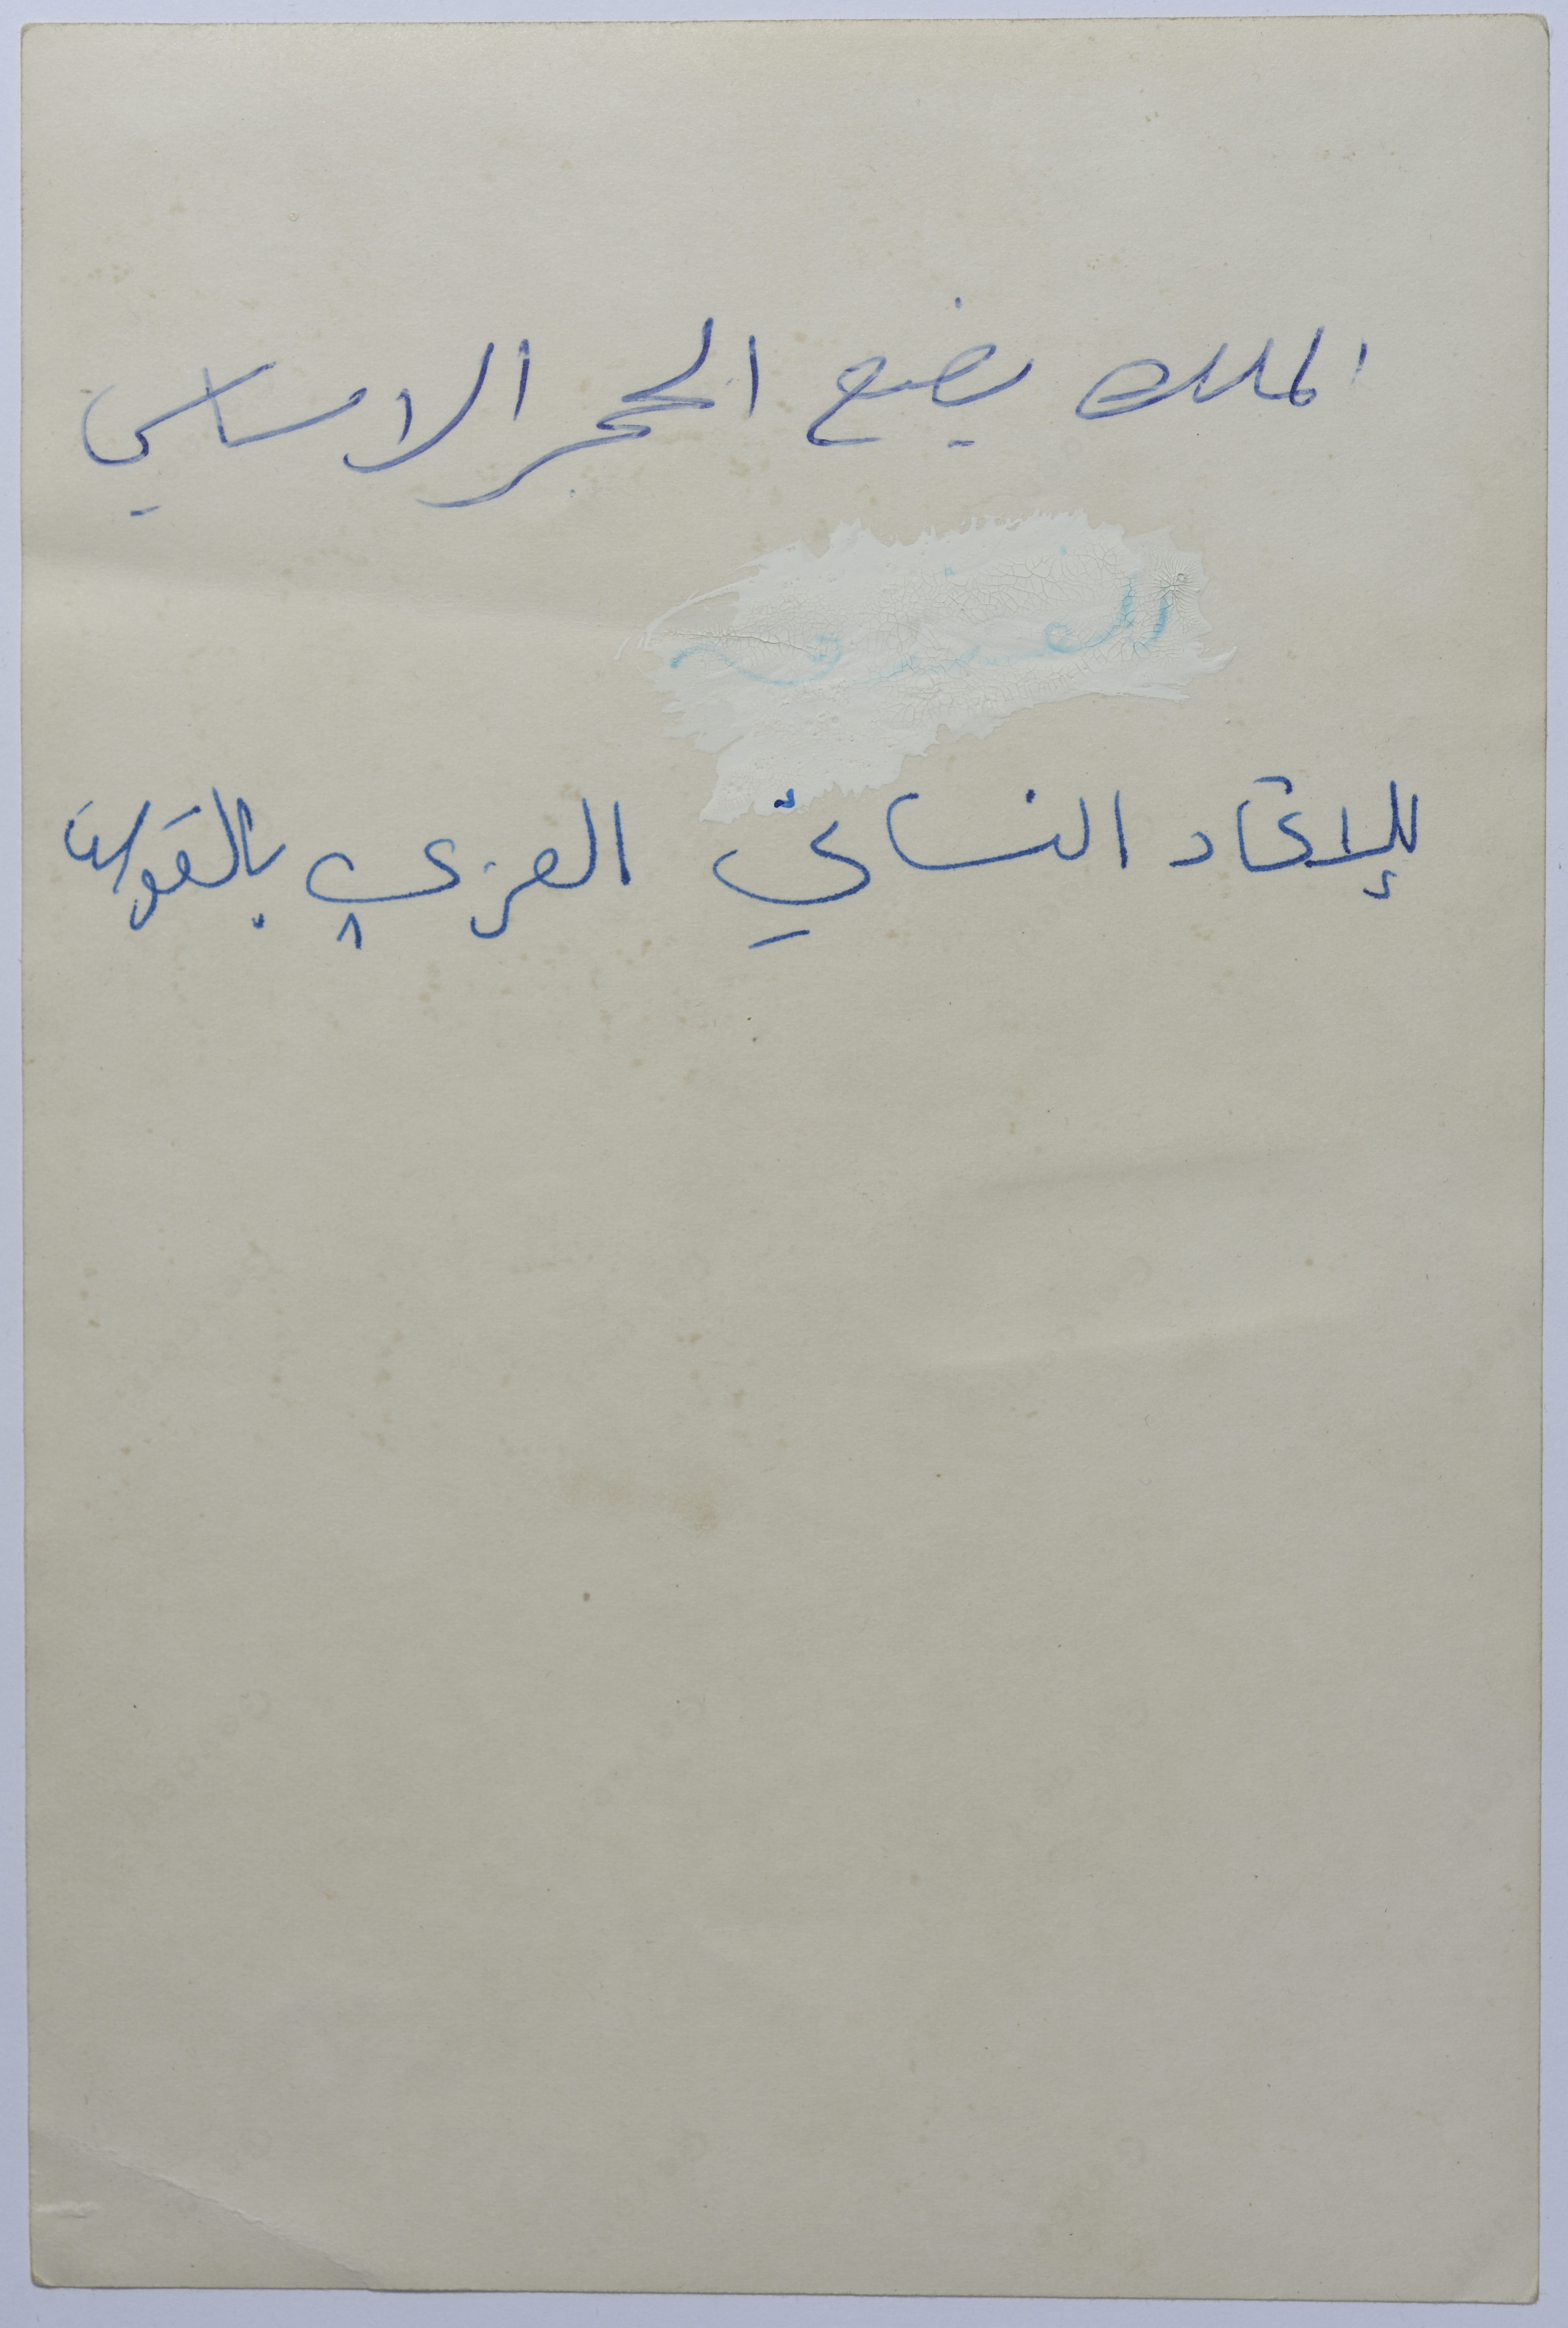 الملك يضع الحجر الاساسي
للإتحاد النسائي العربي بالقدس